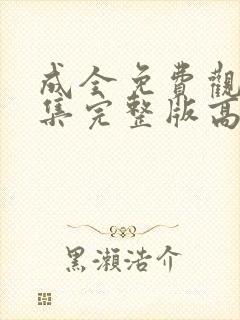 成全免費觀
集完整版高
黑瀨浩介